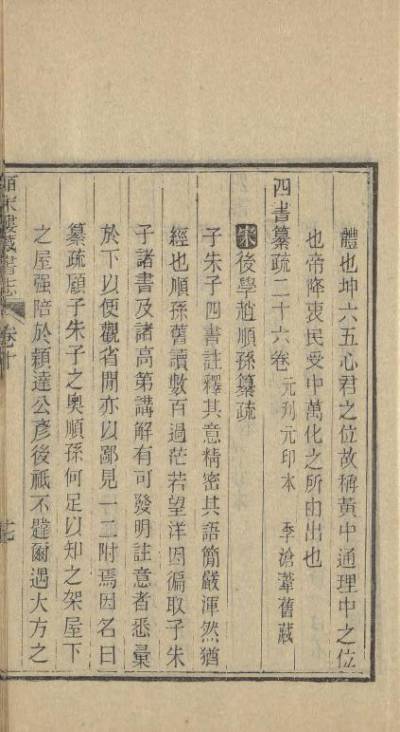 體也坤六五心君之位故稱黃中通理中之位
也帝降衷民受中萬化之所由出也
四書纂疏二十六卷 元刋元印本 季滄葦舊藏
宋後學趙順孫纂疏
子朱子四書註釋其意精密其語簡嚴渾然猶
經也順孫舊讀數百過茫若望洋因徧取子朱
子諸書及諸高第講解有可發明註意者悉彙
於下以便觀省閒亦以鄙見一二附焉因名曰
纂疏顧子朱子之奧順孫何足以知之架屋下
之屋强陪於穎達公彥後祇不韙爾遇大方之
皕宋樓藏書志 卷十